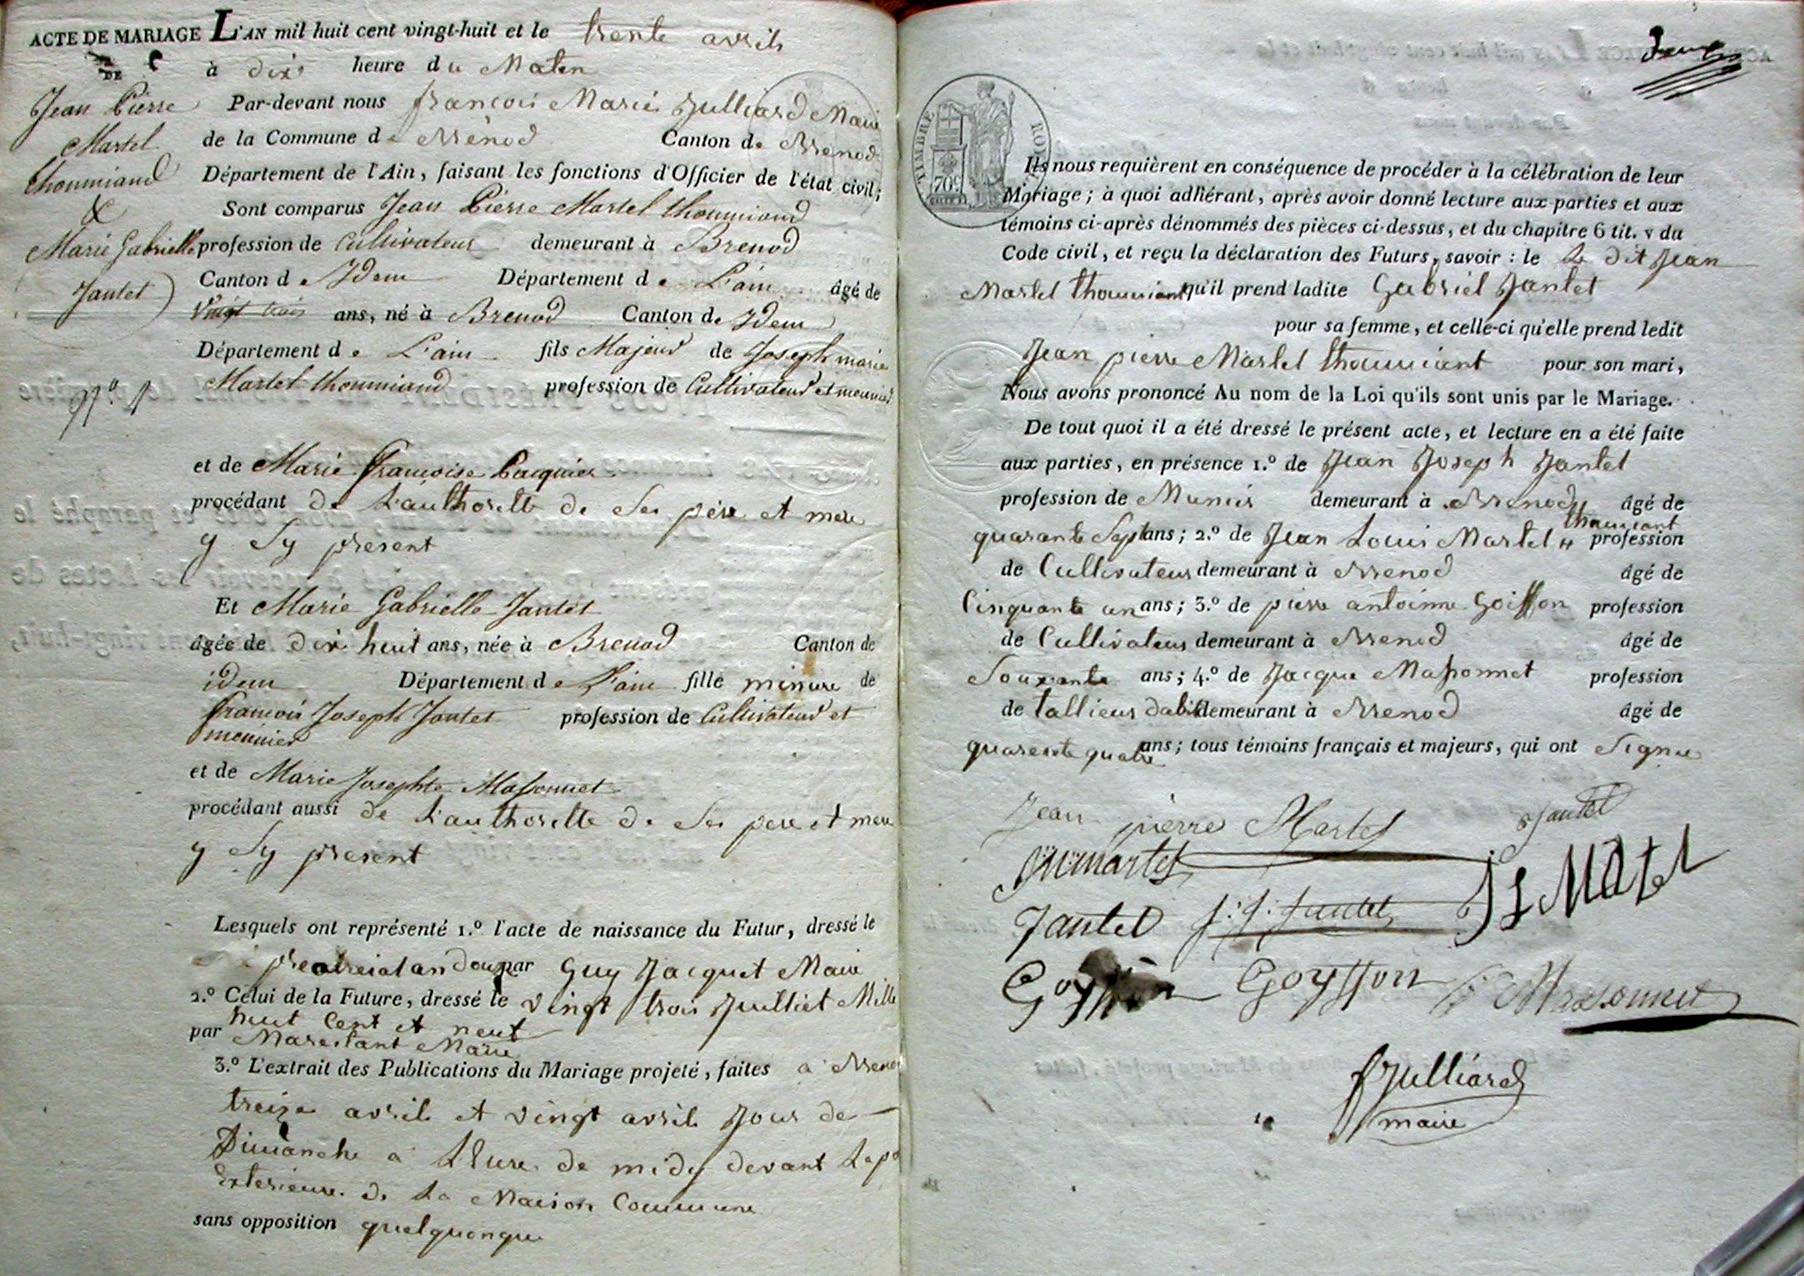 ACTE DE MARIAGE L'AN mil huit cent vingt-huit et le trente avril
DE
à dix heure du Maten
Jean Pierre
Martel
thoumiand
&
Marie Gabrielle
Jantet
N.º 4
Par-devant nous françois Marie Julliard Maire
de la Commune de Brénod Canton de Brenod
Département de l'Ain, faisant les fonctions d'Officier de l'état civil;
Sont comparus Jean Pierre Martel thoumiand
profession de Cultivateur demeurant à Brenod
Canton de Idem Département de L'ain âgé de
vingt trois ans, né à Brenod Canton de Idem
Département de L'ain fils Majeur de Joseph marie
Martel thoumiand profession de Cultivateur et meunier
et de Marie françoise Pacquier
procédant de L'authorette de Ses père et mere
y Sy present
Et Marie Gabrielle Jantet
âgée de dix huit ans, née à Brenod Canton de
idem Département de L'ain fille minure de
françois Joseph Jantet profession de Cultivateur et
meunier
et de Marie Josephte Massonnet
procédant aussi de L'authorette de Ses pere et mere
y Sy present
Lesquels ont représenté 1.º l'acte de naissance du Futur, dressé le
an douze par Guy Jacquet Maire
2.º Celui de la Future, dressé le vingt trois Julliet Mille
huit Cent et neuf
par Marestant Maire
3.º L'extrait des Publications du Mariage projeté, faites a Brenod
treize avril et vingt avril Jour de
Dimanche a LEure de midy devant La po
Exterieure de La Maison Commune
sans opposition quelquonque
TIMBRE ROYAL
70c
Ils nous requièrent en conséquence de procéder à la célébration de leur
Mariage; à quoi adhérant, après avoir donné lecture aux parties et aux
témoins ci-après dénommés des pièces ci-dessus, et du chapitre 6 tit. v du
Code civil, et reçu la déclaration des Futurs, savoir: le Le dit Jean
Martel thoumiant qu'il prend ladite Gabriel Jantet
pour sa femme, et celle-ci qu'elle prend ledit
Jean pierre Martel thoumiant pour son mari,
Nous avons prononcé Au nom de la Loi qu'ils sont unis par le Mariage.
De tout quoi il a été dressé le présent acte, et lecture en a été faite
aux parties, en présence 1.º de Jean Joseph Jantet
profession de Munier demeurant à Brenod âgé de
quarante Sept ans; 2.º de Jean Louis Martel thoumiant profession
de Cultivateur demeurant à Brenod âgé de
Cinquante un ans; 3.º de pierre antoinne Goiffon profession
de Cultivateur demeurant à Brenod âgé de
Souxante ans; 4.º de Jacque Massonnet profession
de tallieur dabit demeurant à Brenod âgé de
quarente quatre ans; tous témoins français et majeurs, qui ont Signee
Jean pierre Martel Jantet
Martel
Jantet j. j. Jantet J L Matel
Goyffon Goyffon Massonnet
f Julliard
maire